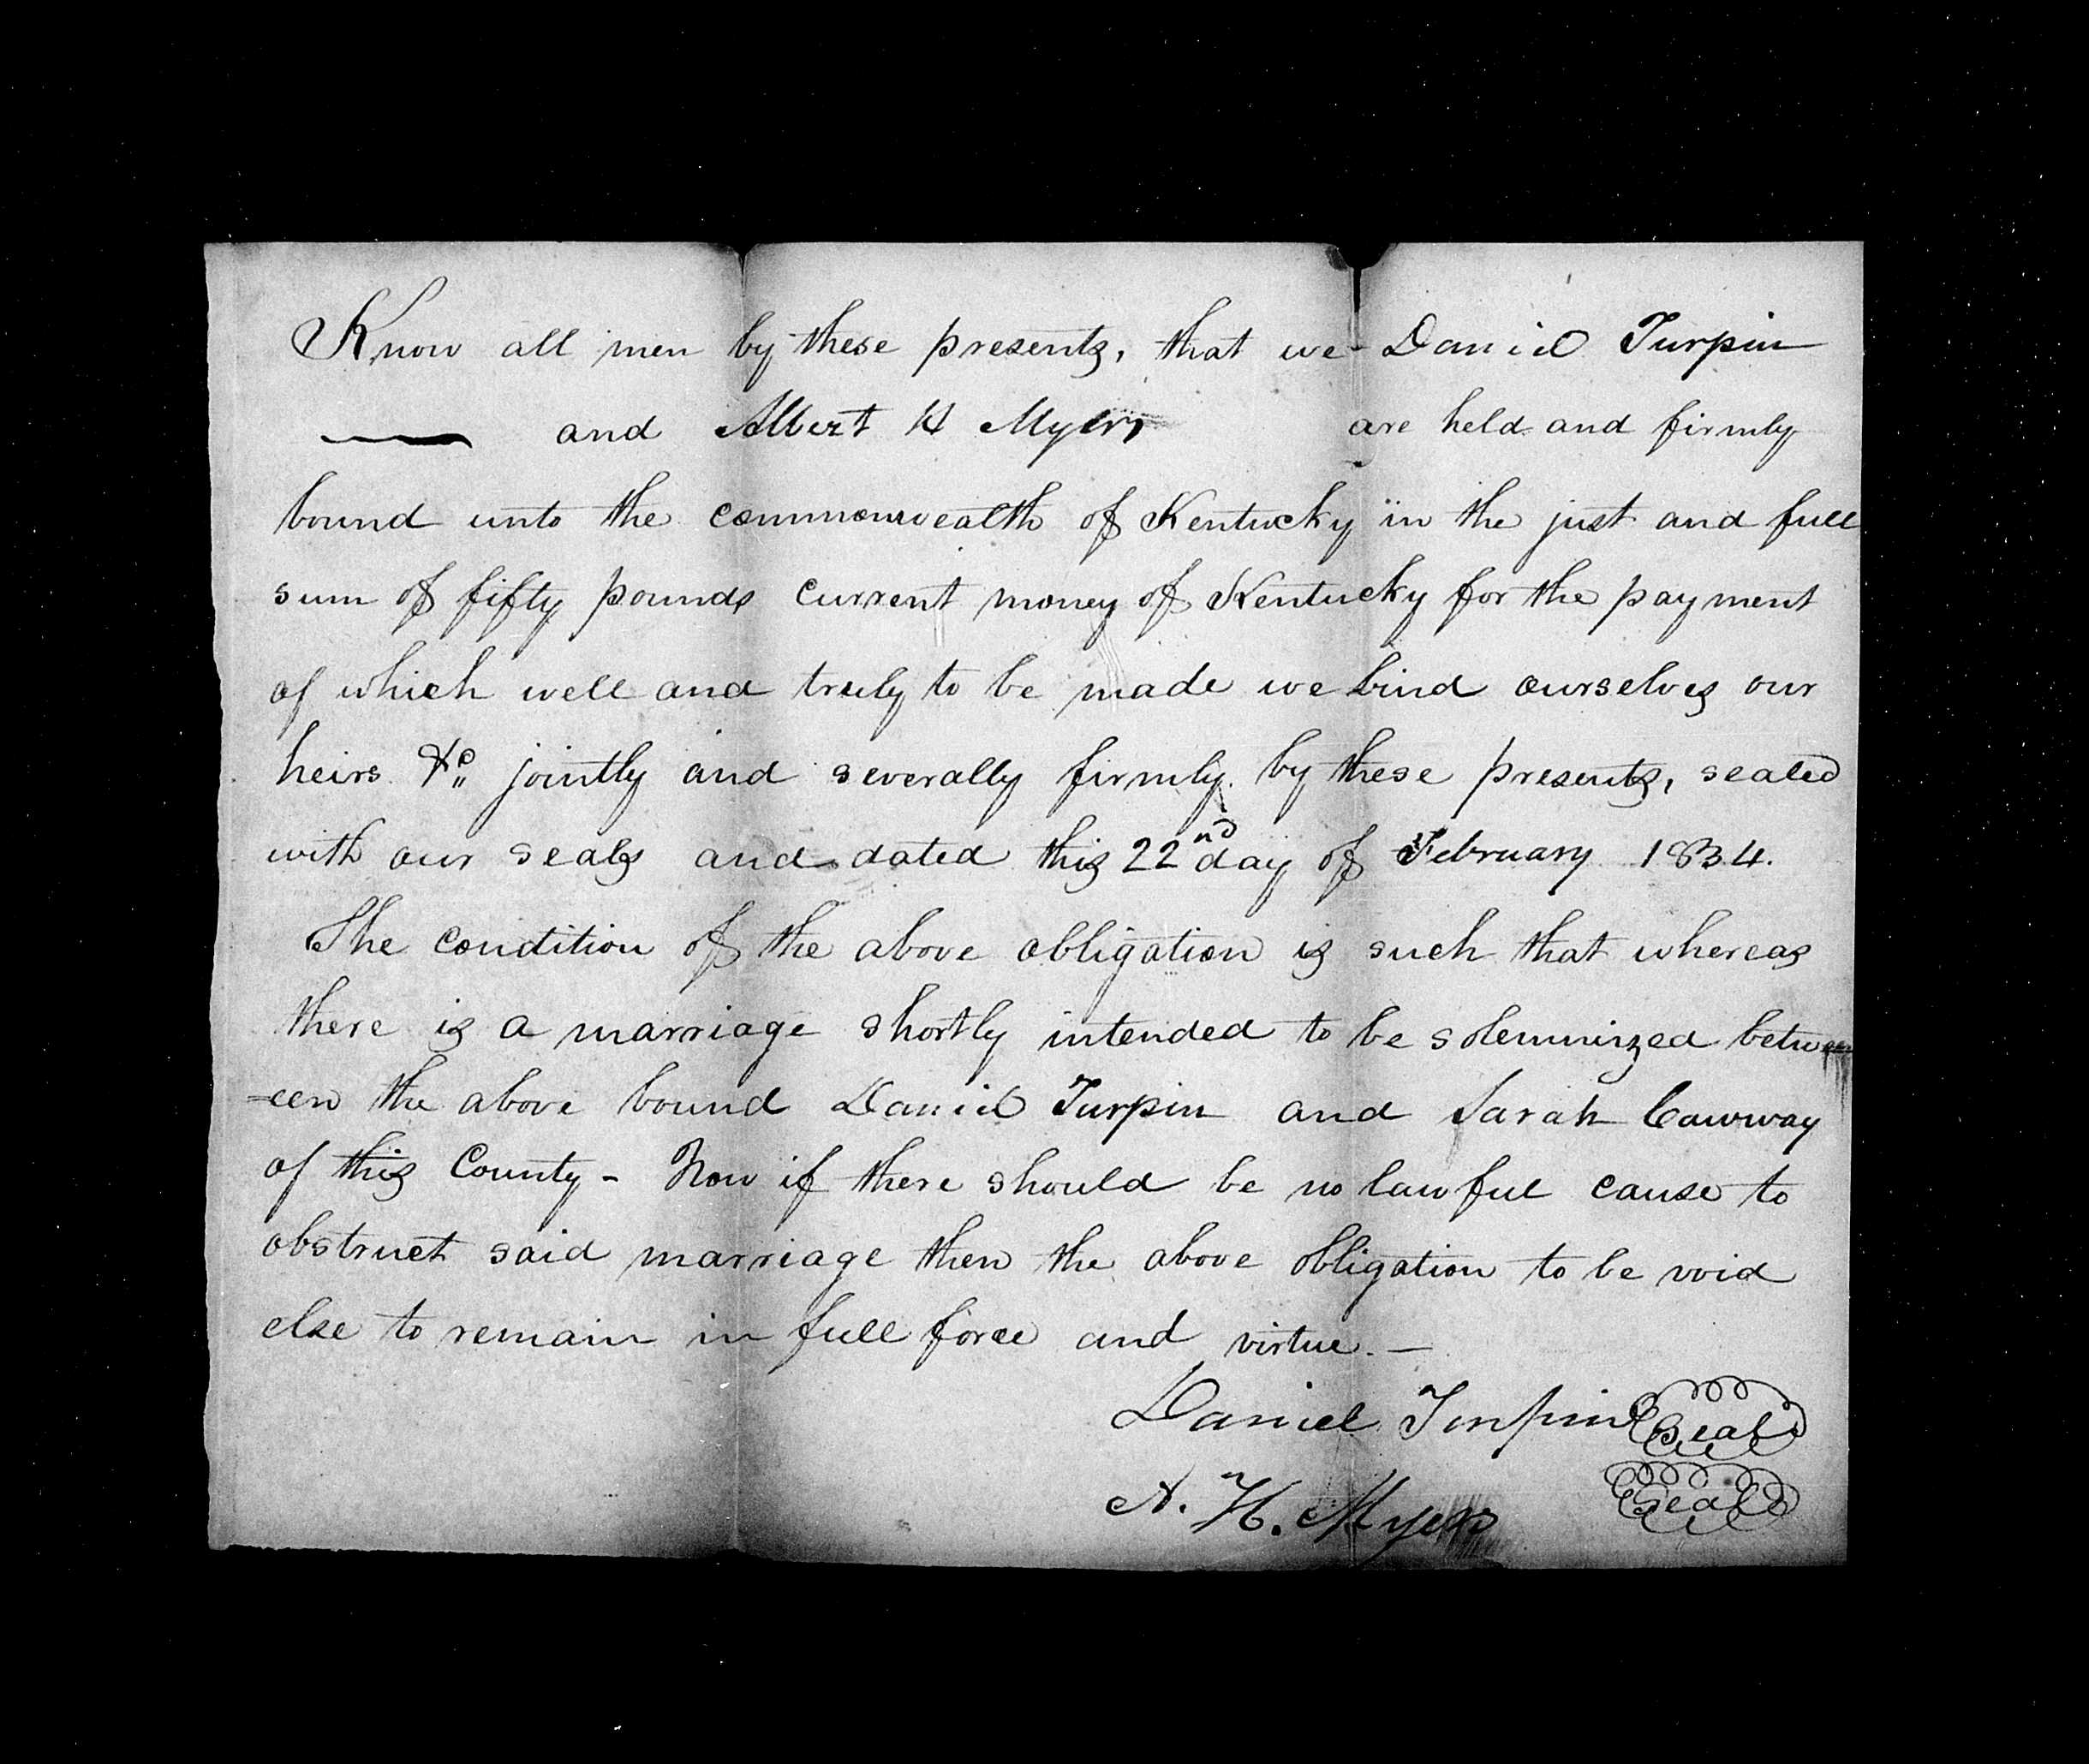 Know all men by these presents, that we Daniel Turpin
— and Albert H Myers are held and firmly
bound unto the commonwealth of Kentucky in the just and full
sum of fifty pounds current money of Kentucky for the payment
of which well and truly to be made we bind ourselves our
heirs &c jointly and severally firmly by these presents, sealed
with our seals and dated this 22nd day of February 1834.
The condition of the above obligation is such that whereas
there is a marriage shortly intended to be solemnized betwe
-een the above bound Daniel Turpin and Sarah Cawway
of this County - Now if there should be no lawful cause to
obstruct said marriage then the above obligation to be void
else to remain in full force and virtue. —
Daniel Turpin Seal
A. H. Myers Seal